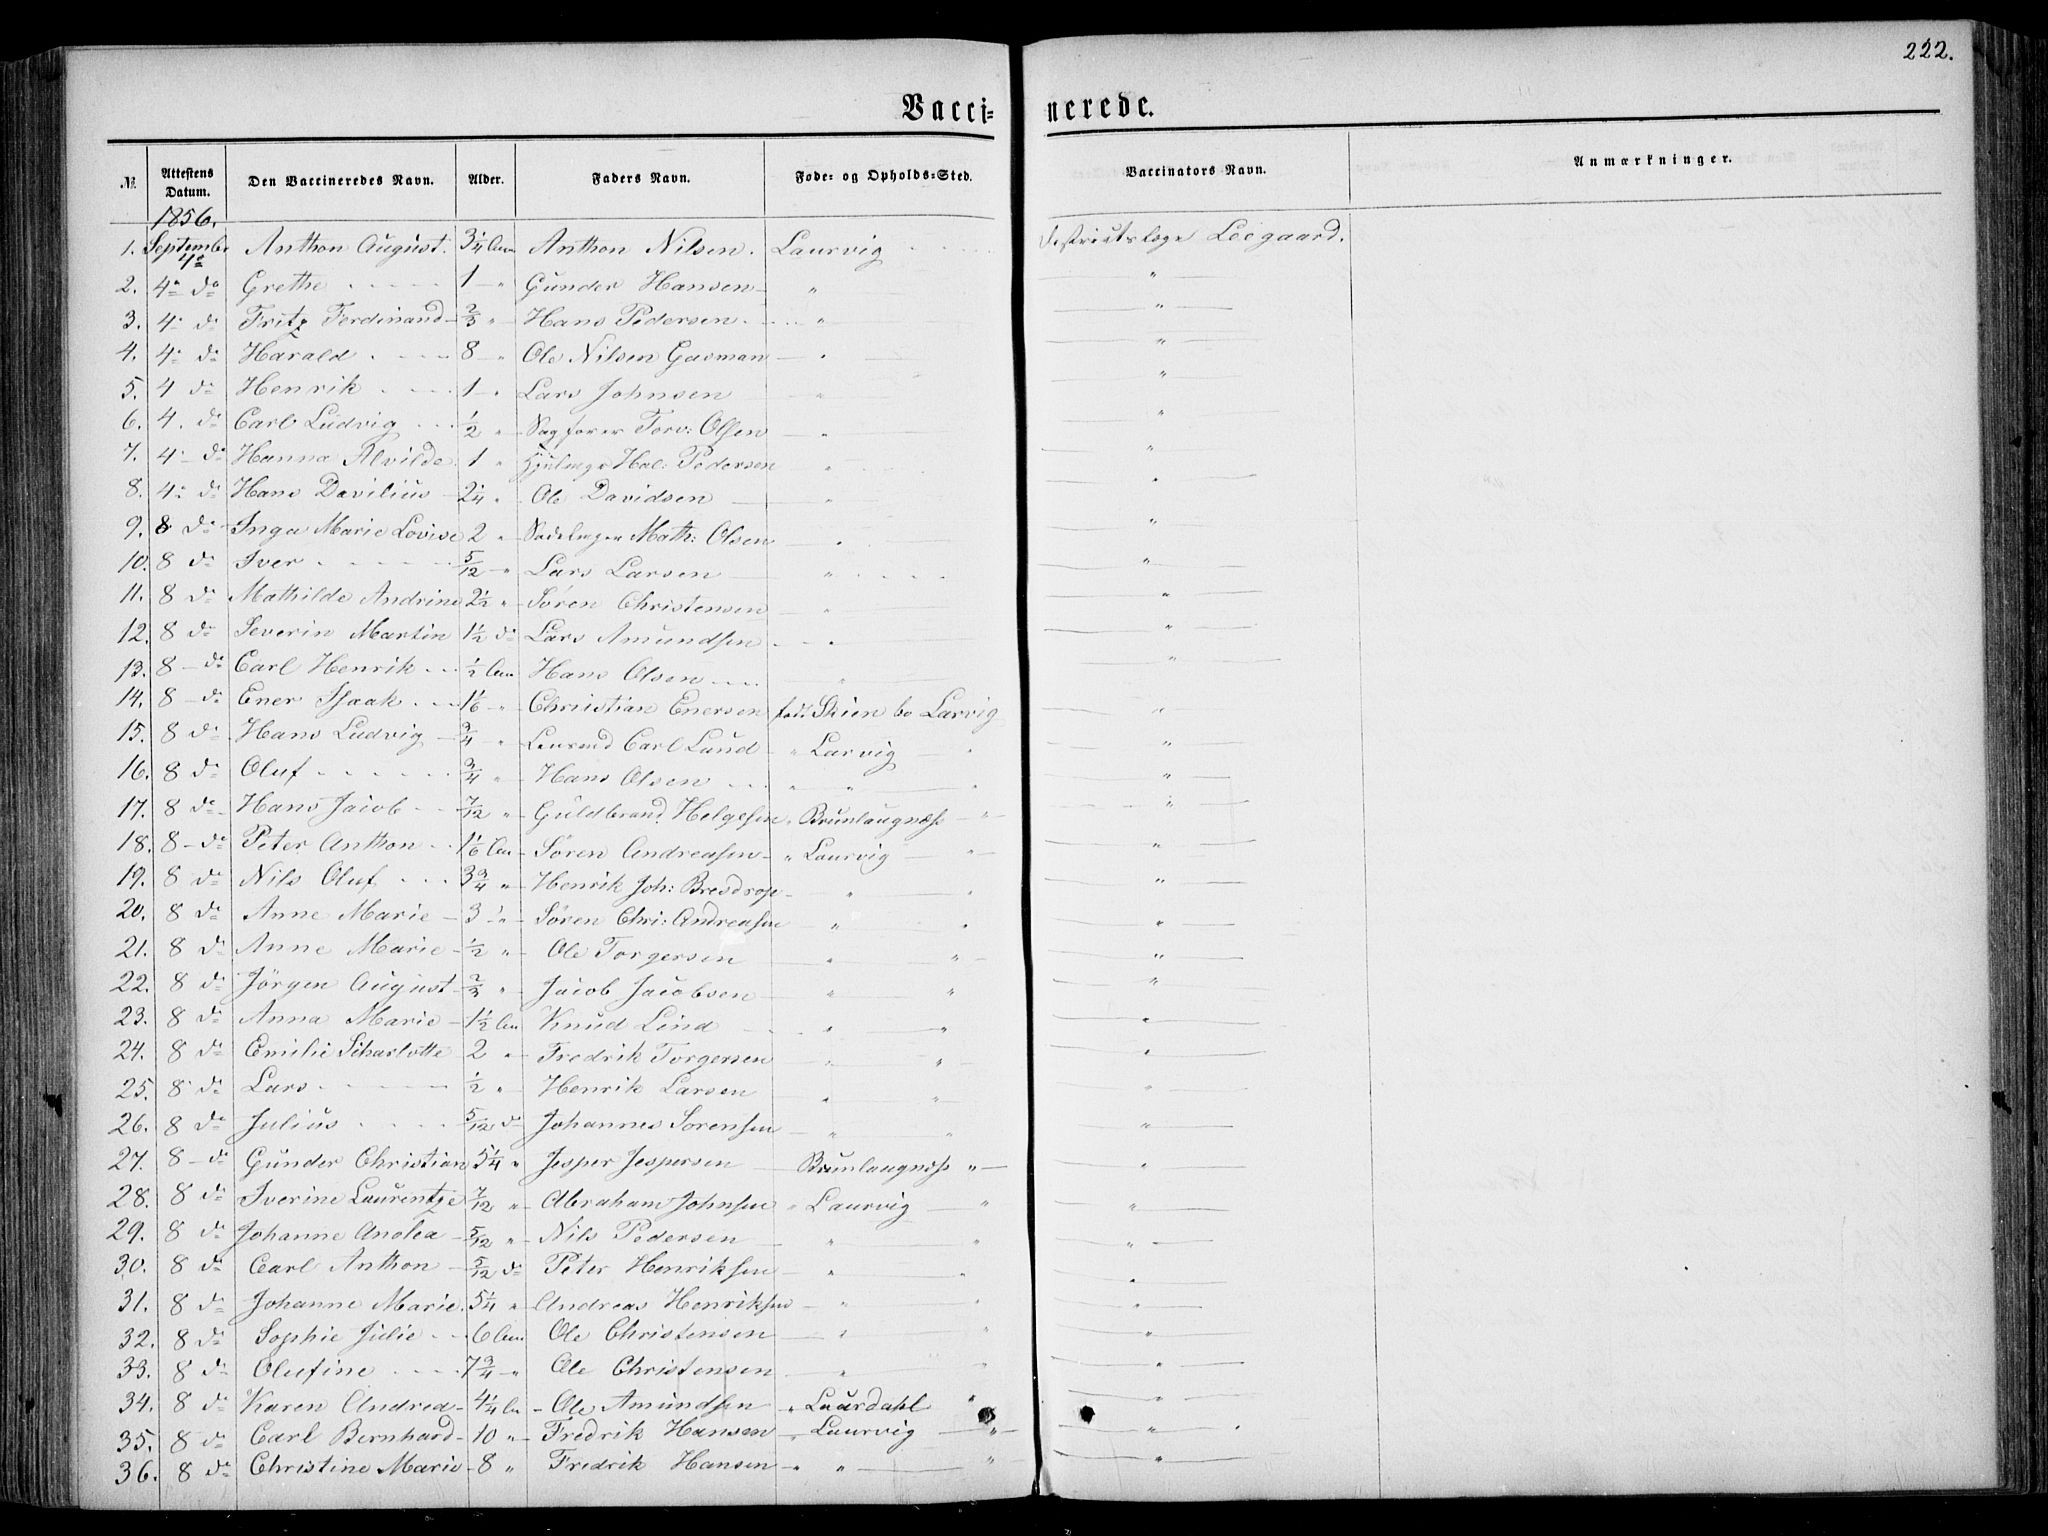 222.
Vacci- nerede.
№. Attestens Datum. Den Vaccineredes Navn. Alder. Faders Navn. Føde- og Opholds-Sted. Vaccinators Navn. Anmærkninger.
1856.
1. September 4de Anthon August. 3¼ Anthon Nilsen. Laurvig Leegaard.
2. 4de do Grethe 1 " Gunder Hansen " "
3. 4de do Fritz Ferdinand ⅔ " Hans Pedersen " "
4. 4de do Harald 8 " Ole Nilsen Gasman " "
5. 4 do Henrik 1 " Lars Johnsen " "
6. 4. do Carl Ludvig ½ " Olsen " "
7. 4 do Hanna Alvilde 1 " Pedersen " "
8. 4de do Hans Davilius 2¼ " Ole Davidsen " "
9. 8 do Inga Marie Lovise 2 " Math: Olsen " "
10. 8 do Iver 5/12 " Lars Larsen " "
11. 8 do Mathilde Andrine 2½ " Sören Christensen " "
12. 8 do Severin Martin 1½ do Lars Amundsen " "
13. 8 do Carl Henrik ½ Hans Olsen " "
14. 8 do Ener Isaak 1⅙ " Christian Enersen Skien bo Larvig "
15. 8 do Hans Ludvig ¾ " Carl Lund " Larvig " "
16. 8 do Oluf ¾ " Hans Olsen " " " "
17. 8 do Hans Jacob 7/12 " Guldbrand Helgesen " Brunlaugnæss " "
18. 8 do Peter Anthon 1⅙ Sören Andreasen " Laurvig " "
19. 8 do Nils Oluf 3¾ " Henrik Joh: " " "
20. 8 do Anne Marie 3 " Sören Chri: Andreasen " " "
21. 8 do Anne Marie ½ " Ole Torgersen " " "
22. 8 do Jörgen August ⅔ " Jacob Jacobsen " " "
23. 8 do Anna Marie 1½ Knud Lind " " "
24. 8 do Emilie Scharlotte 2 " Fredrik Torgersen " " "
25. 8 do Lars ½ " Henrik Larsen " " "
26. 8 do Julius 5/12 do Johannes Sorensen " " "
27. 8 do Gunder Christian 5¼ " Jesper Jespersen Brunlaugnæss " "
28. 8 do Iverine Laurentze 7/12 " Abraham Johnsen " Laurvig " "
29. 8 do Johanne 5/12 " Nils Pedersen " " "
30. 8 do Carl Anthon 5/12 do Peter Henriksen " " "
31. 8 do Johanne Marie 5¼ " Andreas Henriksen " " "
32. 8 do Sophie Julie 6 Ole Christensen " " "
33. 8 do Olufine 7¾ " Ole Christensen " " "
34. 8 do Karen Andrea 4¼ Ole Amundsen " Laurdahl " "
35. 8 do Carl Bernhard 10 " Fredrik Hansen " Laurvig " "
36. 8 do Christine Marie 8 " Fredrik Hansen " " " "